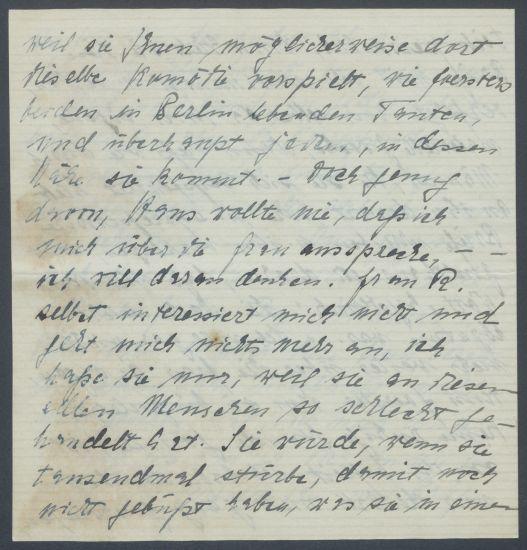 weil sie Ihnen möglicherweise dort
dieselbe Komödie vorspielt, wie
beiden in Berlin lebenden Tanten,
und überhaupt jedem, in dessen
Nähe sie kommt. – Doch genug
davon, Hans wollte nie, daß ich
mich über die Frau ausspreche, – –
ich will daran denken. Frau R.
selbst interessiert mich nicht und
geht mich nichts mehr an, ich
haße sie nur, weil sie an diesem
edlen Menschen so schlecht ge-
handelt hat. Sie würde, wenn sie
tausendmal stürbe, damit noch
nicht gebüßt haben, was sie in einem